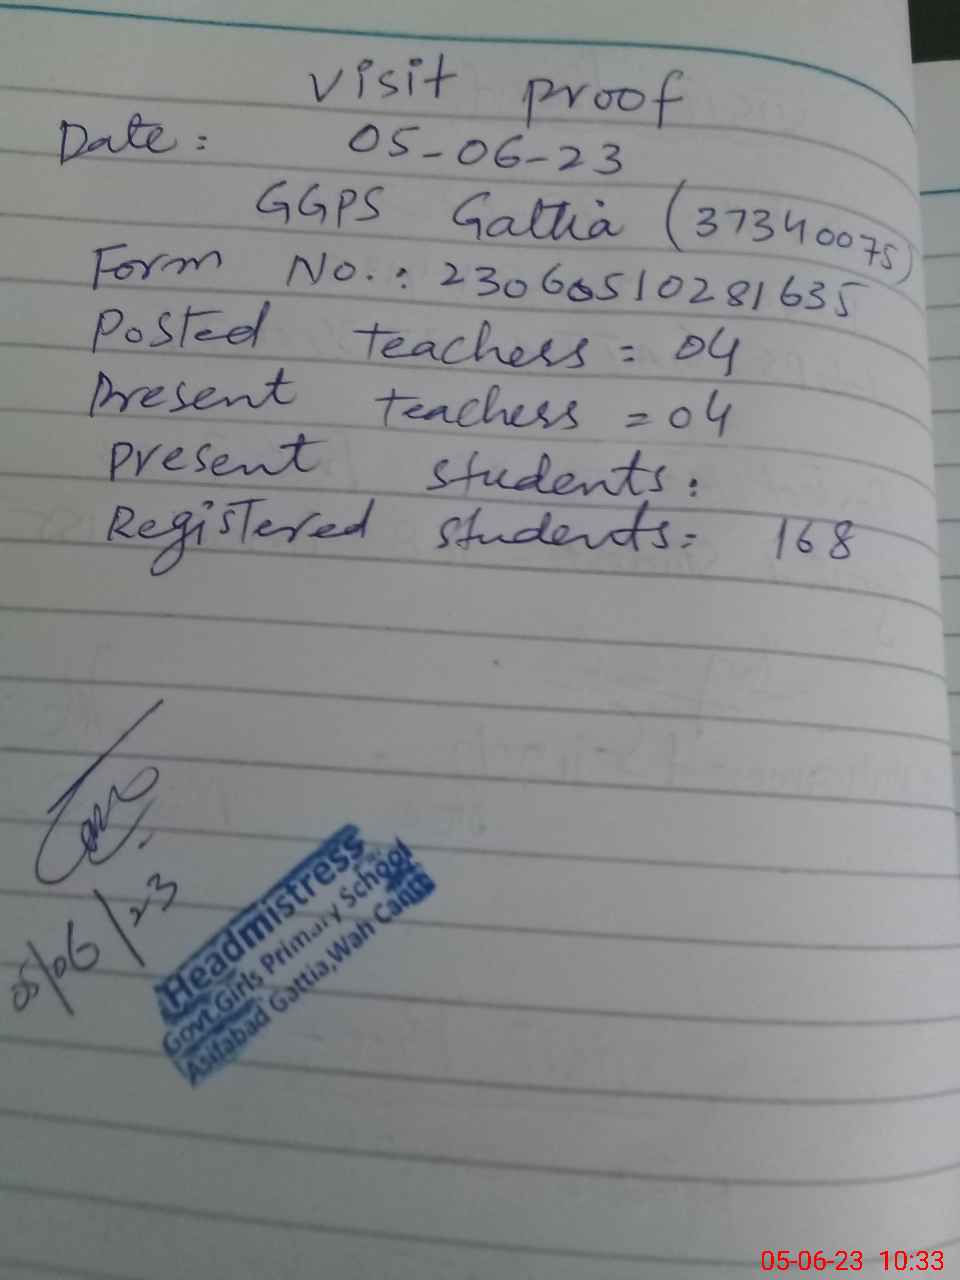 Visit Proof
Date: 05-06-23
GGPS Gattia (37340075)
Form No.: 23060510281635
Posted teachers = 04
Present teachers = 04
Present students:
Registered students= 168
05/06/23
Headmistress
Govt.Girls Primary School
Asifabad Gattia,Wah Cantt
05-06-23 10:33